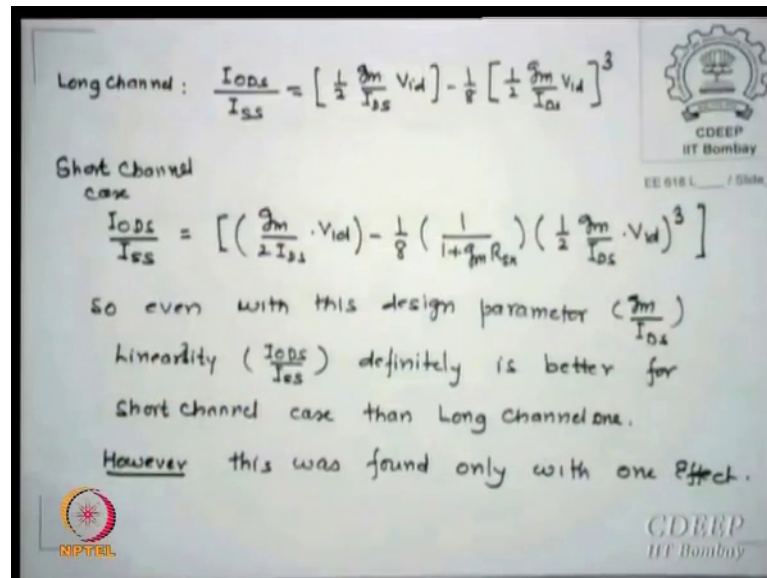 Long Channel: I_ODS / I_SS = [ 1/2 gm/I_DS Vid ] - 1/8 [ 1/2 gm/I_DS Vid ]^3
CDEEP
IIT Bombay
EE 618 L___ / Slide
Short Channel
case
I_ODS / I_SS = [ ( gm / 2 I_DS · Vid ) - 1/8 ( 1 / 1+gm R_SX ) ( 1/2 gm/I_DS · Vid )^3 ]
So even with this design parameter ( gm / I_DS )
Linearity ( I_ODS / I_SS ) definitely is better for
Short Channel case than Long Channel one.
However this was found only with one Effect.
NPTEL
CDEEP
IIT Bombay